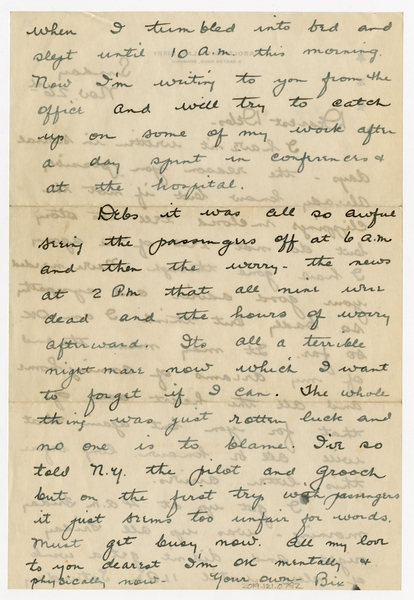 when I tumbled into bed and
slept until 10 A.M. this morning.
Now I'm writing to you from the
office and will try to catch
up on some of my work after
a day spent in conferences &
at the hospital.
Debs it was all so awful
seeing the passengers off at 6 A.M
and then the worry - the news
at 2 P.M that all nine were
dead and the hours of worry
afterward. It's all a terrible
night mare now which I want
to forget if I can. The whole
thing was just rotten luck and
no one is to blame. I've so
told N.Y. the pilot and grooch
but on the first trip with passengers
it just seems too unfair for words.
Must get busy now. All my love
to you dearest I'm OK mentally &
physically now - Your own - Bix
2019.121.0792